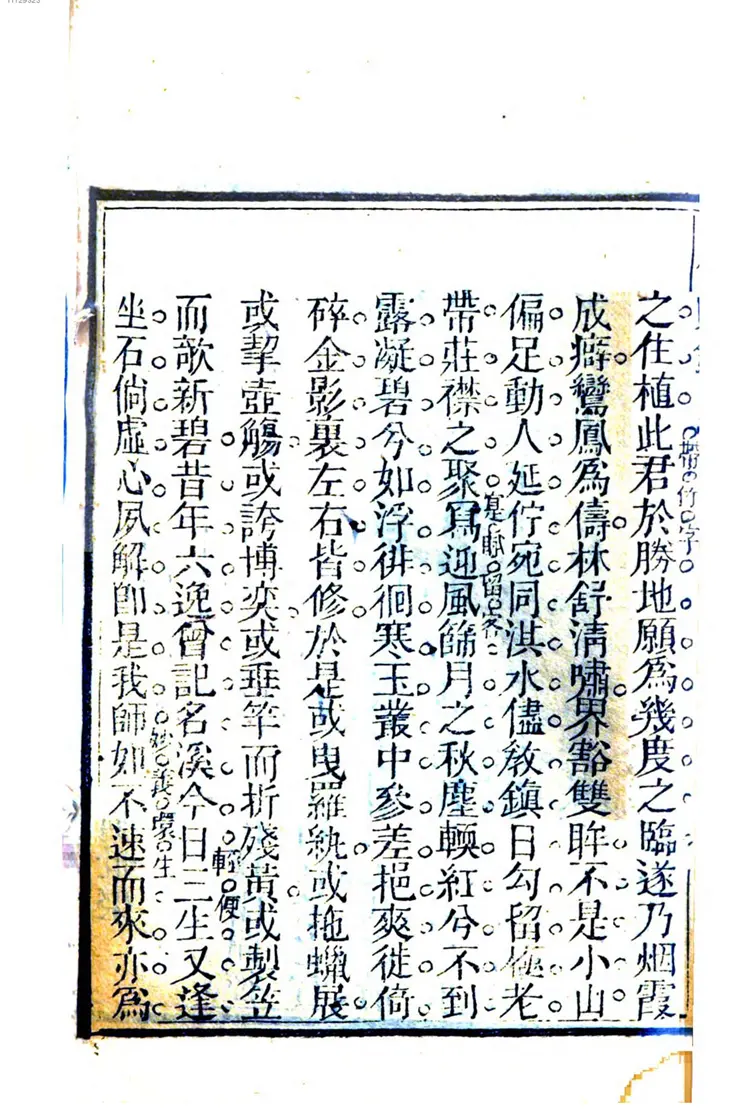 11129323
之住植此君於勝地願爲幾度之臨遂乃烟霞
帶竹字
成癖鸞鳳爲儔林舒清嘯界豁雙眸不是小山
偏足動人延佇宛同淇水儘教鎮日勾留極老
是暫留客
帶莊襟之聚寫迎風篩月之秋塵輭紅兮不到
露凝碧兮如浮徘徊寒玉叢中參差挹爽徙倚
碎金影裏左右皆修於是或曳羅紈或拖蠟屐
或挈壺觴或誇博奕或垂竿而折殘黃或製笠
輕便
而歌新碧昔年六逸曾記名溪今日三生又逢
妙義環生
坐石倘虛心夙解卽是我師如不速而來亦爲